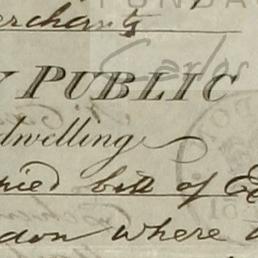 FUNDAC
erchants
Carlos
Y PUBLIC
dwelling
pied bill of E
don where